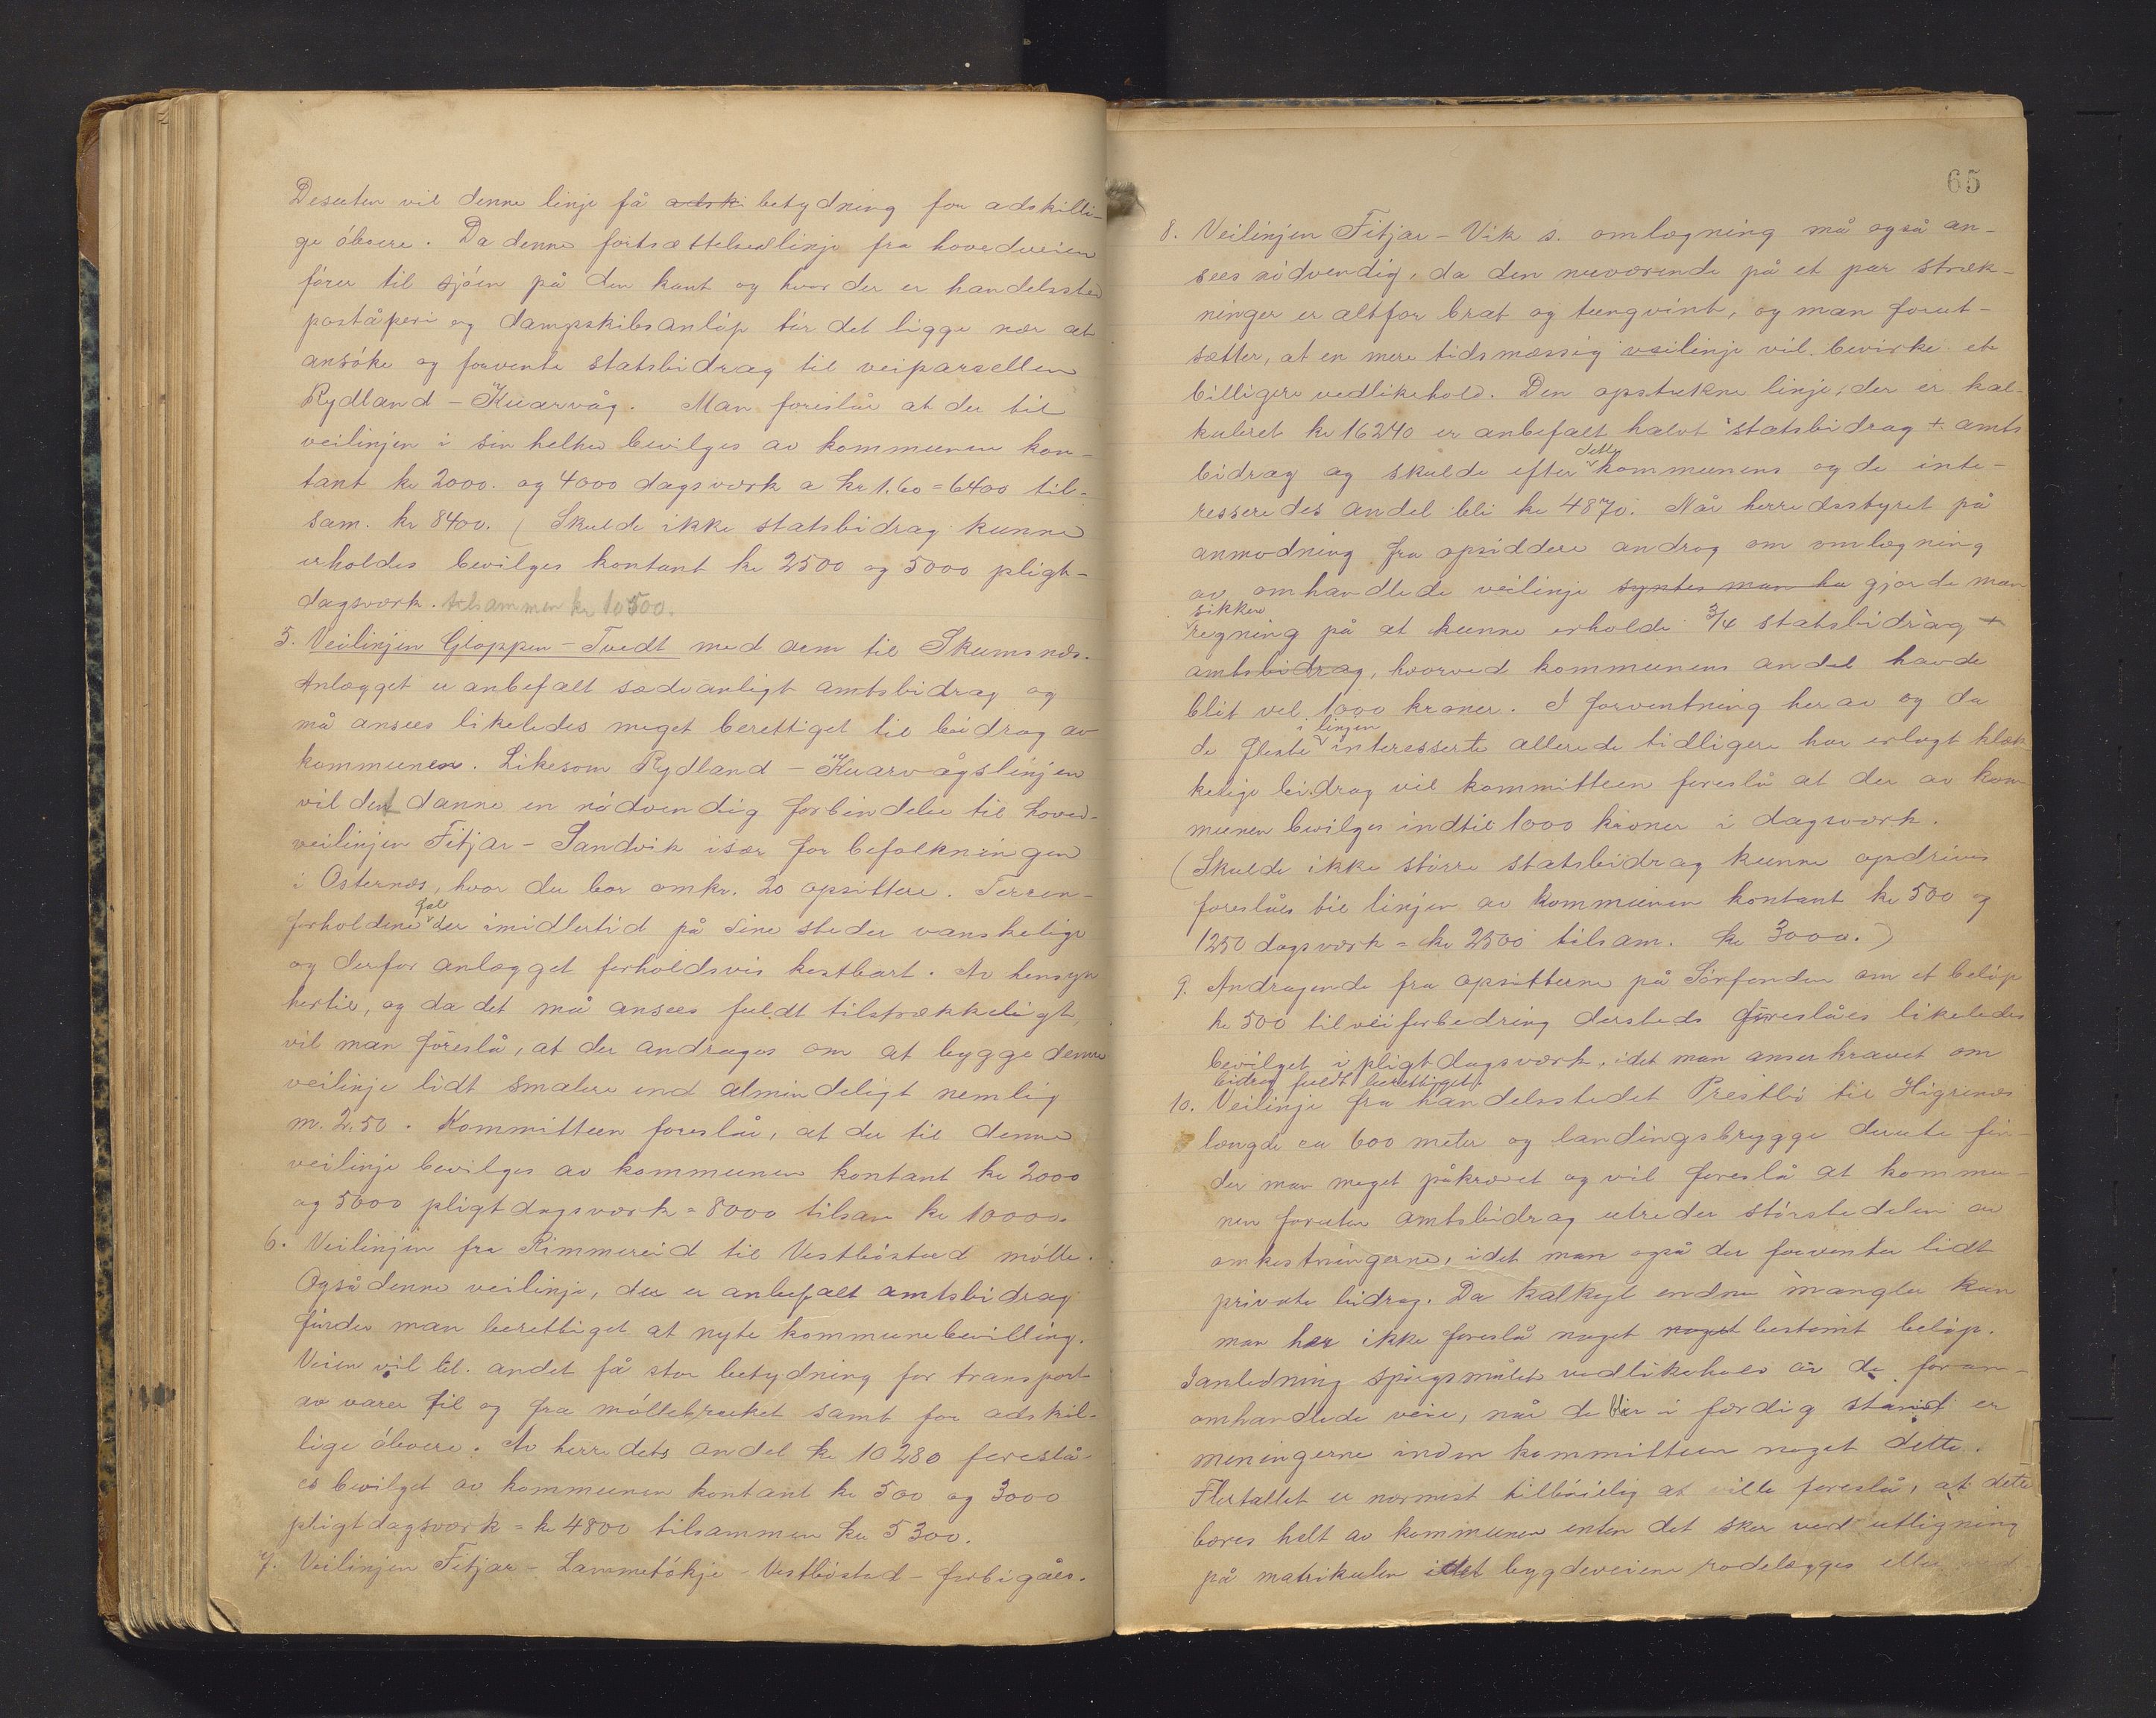 Desuten vil denne linje få adski betydning for adskilli-
ge óboere. Da denne fortsættelseslinje fra hovedveien
fórer til sjóen på den kant og hvor der er handelssted
poståperi og dampskibsanlóp tór det ligge nær at
ansóke og forvente statsbidrag til veiparsellen
Rydland - Kvarvåg. Man foreslår at der til
veilinjen i sin helhed bevilges av kommunen kon-
tant kr 2000. og 4000 dagsværk a kr 1.60 = 6400 til-
sam. kr 8400. ( Skulde ikke statsbidrag kunne
erholdes bevilges kontant kr 2500 og 5000 pligt-
dagsværk. tilsammen kr 10500.
5. Veilinjen Gloppen - Tvedt med arm til Skumsnæs.
Anlægget er anbefalt sædvanligt amtsbidrag og
må ansees likeledes meget berettiget til bidrag av
kommunen. Likesom Rydland - Kvarvågslinjen
vil den danne en nódvendig forbindelse til hoved-
veilinjen Fitjar - Sandvik især for befolkningen
i Osternæs, hvor der bor omkr. 20 opsittere. Terræn-
forholdene fal der imidlertid på sine steder vanskelige
og derfor anlægget forholdsvis kostbart. Av hensyn
hertil, og da det må ansees fuldt tilstrækkeligt,
vil man foreslå, at der andrages om at bygge denne
veilinje lidt smalere end almindeligt nemlig
m. 2,50. Kommitteen foreslår, at der til denne
veilinje bevilges av kommunen kontant kr 2000
og 5000 pligtdagsværk = 8000 tilsam kr 10000.
6. Veilinjen fra Rimmereid til Vestbóstad mólle.
Også denne veilinje, der er anbefalt amtsbidrag
finder man berettiget at nyte kommunebevilling.
Veien vil bl. andet få stor betydning for transport
av varer til og fra móllebruket samt for adskil-
lige óboere. Av herredets andel kr 10280 foreslå-
es bevilget av kommunen kontant kr 500 og 3000
pligtdagsværk = kr 4800 tilsammen kr 5300.
7. Veilinjen Fitjar - Lammetókje - Vestbóstad - forbigåes.
65
8. Veilinjen Fitjar - Vik s. omlægning må også an-
sees nódvendig, da den nuværende på et par stræk-
ninger er altfor brat og tungvint, og man forut-
sætter, at en mere tidsmæssig veilinje vil bevirke et
billigere vedlikehold. Den opstukne linje, der er kal-
kuleret kr 16240 er anbefalt halvt statsbidrag + amts
bidrag og skulde efter dette kommunens og de inte-
resseredes andel bli kr 4870. Når herredsstyret på
anmodning fra opsiddere androg om omlægning
av omhandlede veilinje syntes man ha gjorde man
sikker
regning på at kunne erholde 3/4 statsbidrag +
amtsbidrag, hvorved kommunens andel havde
blit vel 1000 kroner. I forventning herav og da
de fleste i linjen interesserte allerede tidligere har erlagt klæk
kelige bidrag vil kommitteen foreslå at der av kom
munen bevilges indtil 1000 kroner i dagsværk.
(Skulde ikke stórre statsbidrag kunne opdrives
foreslåes til linjen av kommunen kontant kr 500 og
1250 dagsværk = kr 2500 tilsam. kr 3000.)
9. Andragende fra opsitterne på Sórfonden om et belóp
kr 500 til veiforbedring dersteds foreslåes likeledes
bevilget i pligtdagsværk, idet man anser kravet om
bidrag fuldt berettiget.
10. Veilinje fra handelsstedet Prestbó til Higrenæs
længde ca 600 meter og landingsbrygge derute fin-
der man meget påkrævet og vil foreslå at kommu-
nen foruten amtsbidrag utreder stórstedelen av
omkostningerne, idet man også der forventer lidt
private bidrag. Da kalkyle endnu mangler kan
man her ikke foreslå noget noget bestemt belóp.
Ianledning spórgsmålet vedlikehold av de foran-
omhandlede veie, når de blir i færdig stand er
meningerne inden kommitteen noget delte.
Flertallet er nærmest tilbóielig at ville foreslå, at dette
bæres helt av kommunen enten det sker ved utligning
på matrikulen idet bygdeveiene rodelægges eller